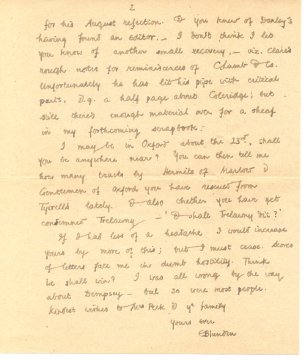 2
for his August refection. D you knew of Darley's
having found an editor. — I don't think I let
you know of another small recovery, — viz. Clare's
rough notes for reminiscences of C Lamb & Co.
Unfortunately he has lit his pipe with critical
parts. E.g. a half page about Coleridge; but
still there's enough material over for a sheaf
in my forthcoming scrapbook.
I may be in Oxford about the 23rd, shall
you be anywhere near? You can then tell me
how many tracts by Hermits of Marlow &
Gentlemen of Oxford you have rescued from
lately. & also whether you have yet
condemned Trelawny — '& shall Trelawny die?'
If I had less of a headache I would increase
yours by more of this; but I must cease. Scores
of letters face me in dumb hostility. Think
he shall win? I was all wrong by the way
about Dempsey — but so were most people.
Kindest wishes to Mrs Peck & yr family
Yours ever
EBlunden